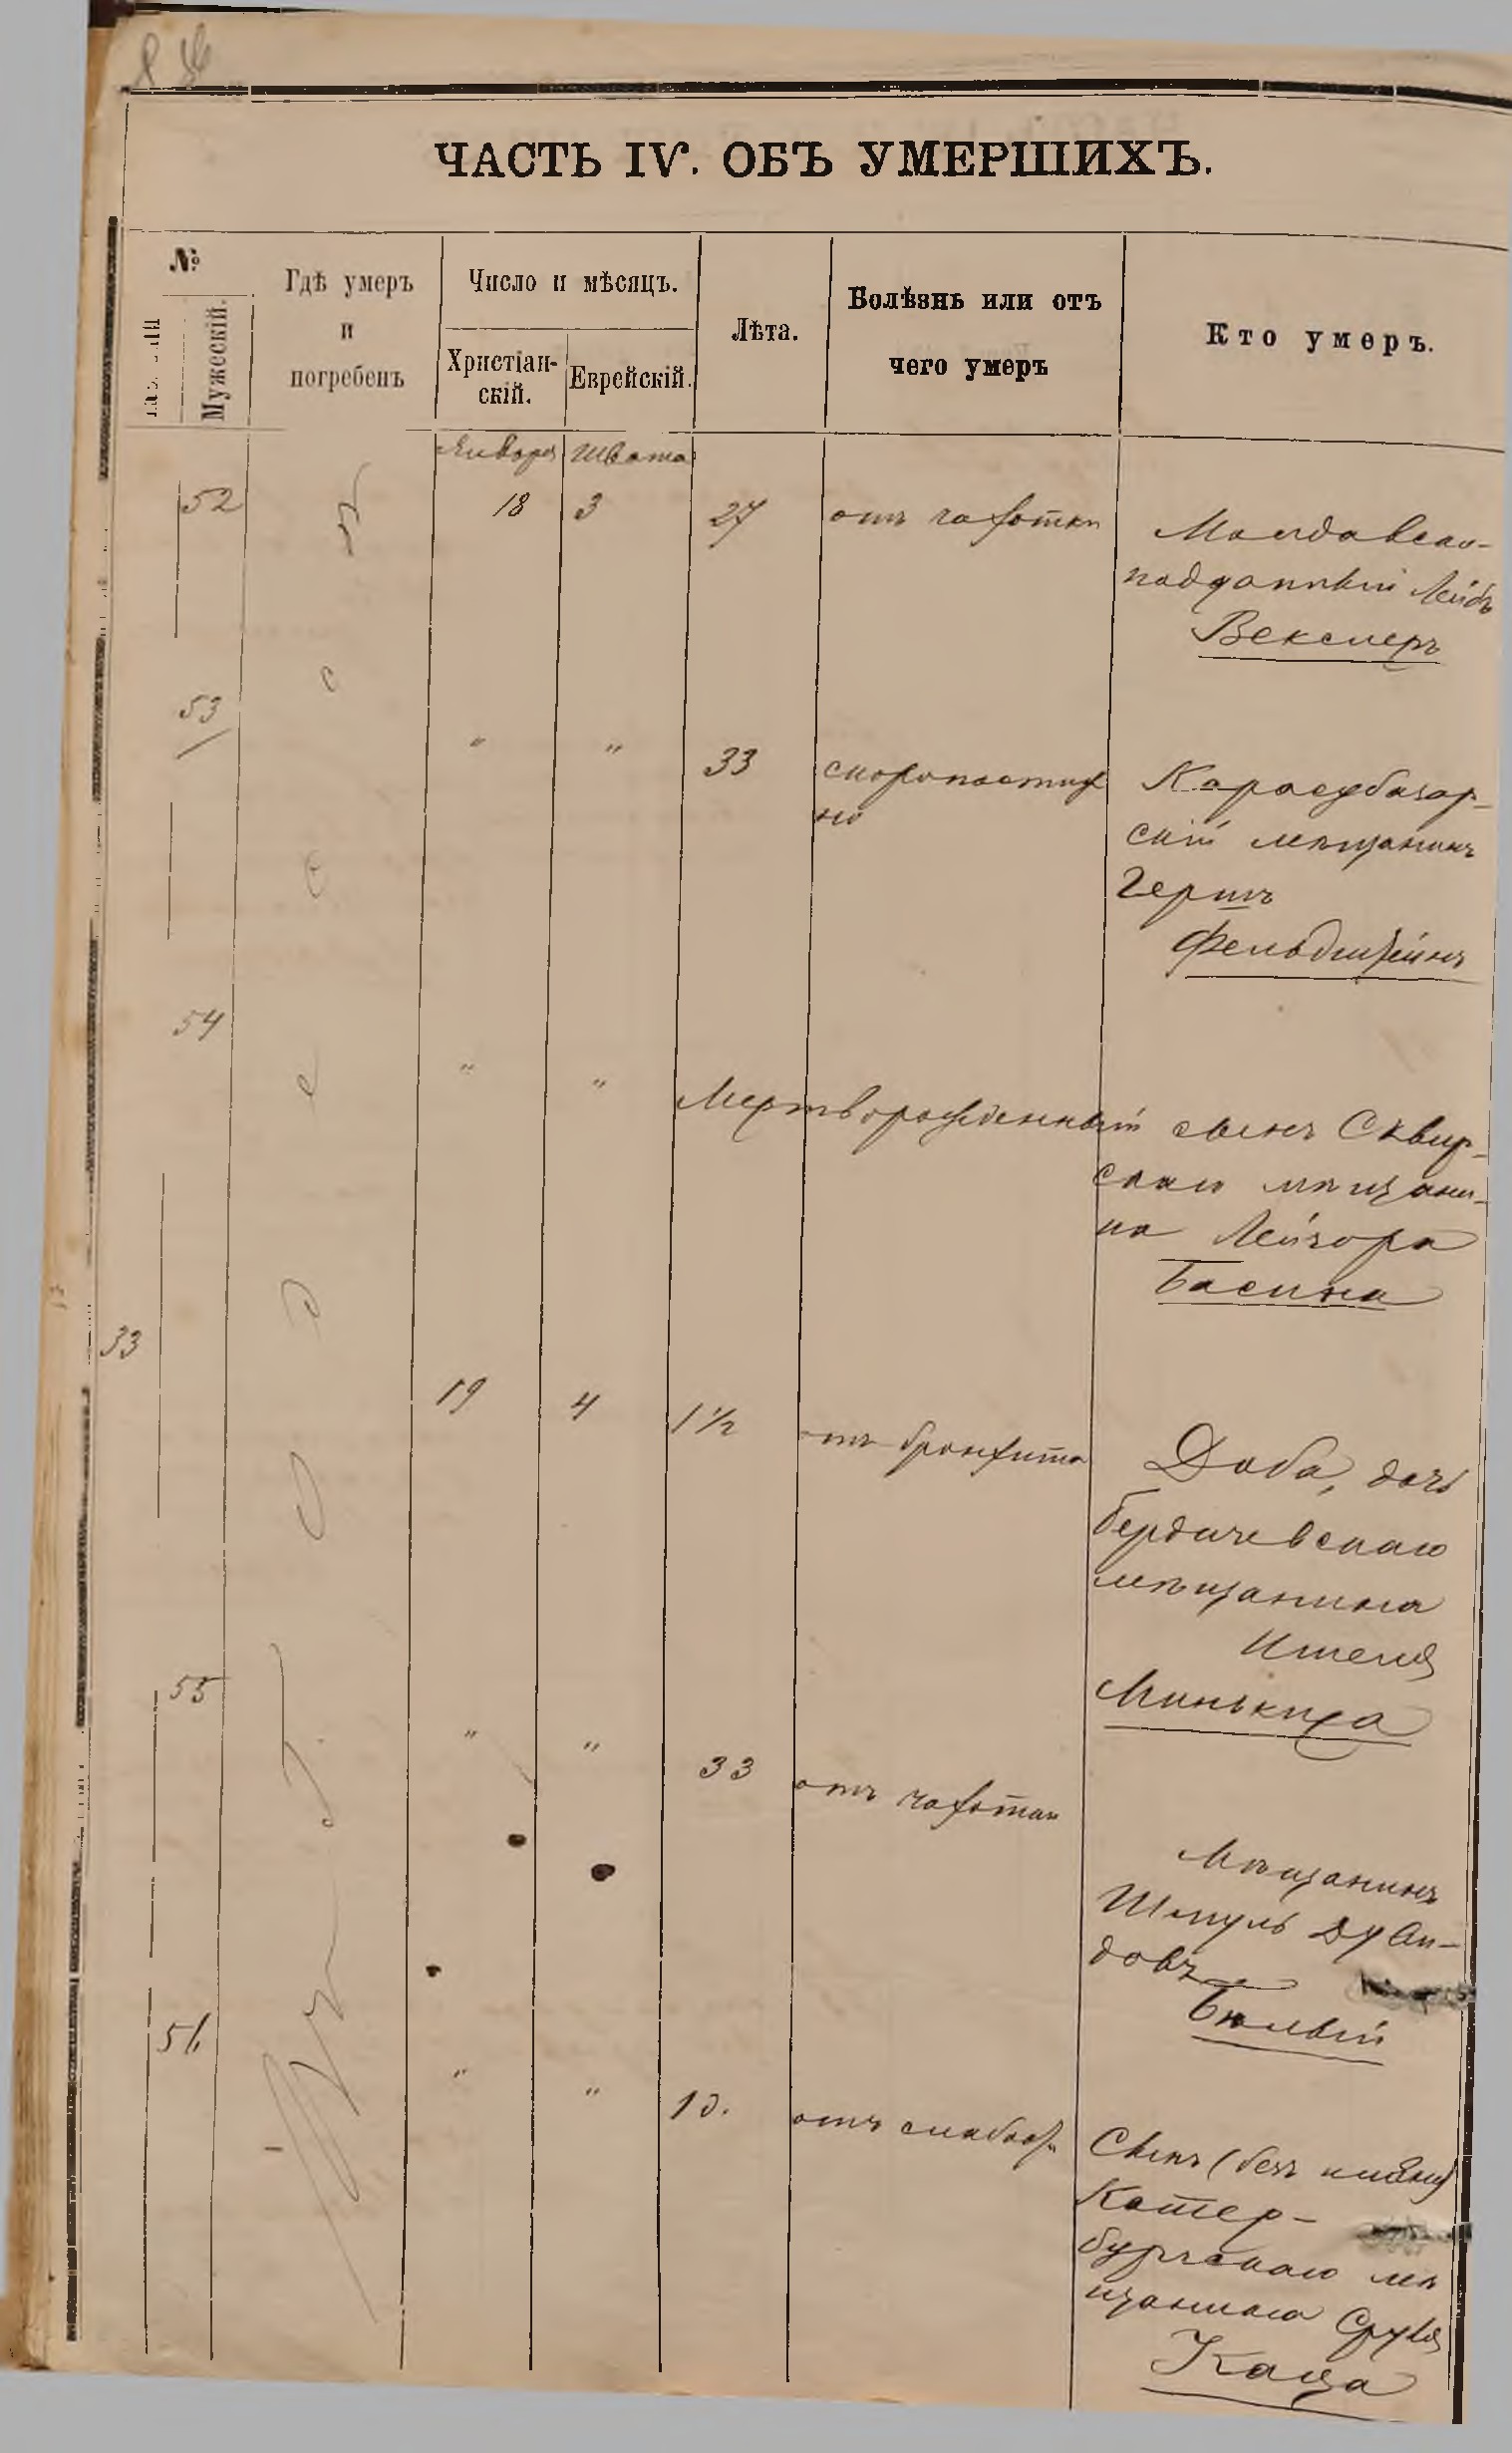 ЧАСТЬ IV. ОБЪ УМЕРШИХЪ.
№
Мужескій.
Гдѣ умеръ
и
погребенъ
Число и мѣсяцъ.
Христіан-
скій.
Еврейскій.
Лѣта.
Болѣзнь или отъ
чего умеръ
Кто умеръ.
Января Швата
52 18 3 27 отъ чахотки Молдавско-
подданный Лейбъ
Векслеръ
53 " " 33 скоропостиж
но
Карасубазар-
скій мѣщанинъ
Гершъ
Фельдштейнъ
54 " " Мертворожденный сынъ Сквир-
скаго мѣщани-
на Лейзора
Басина
33 19 4 1½ отъ бронхита Доба, дочь
бердичевскаго
мѣщанина
Минькиса
55 " " 33 отъ чахотки
Мѣщанинъ
Шмуль
довъ
Бѣлый
56 " " 1 д. отъ слабос
Сынъ (безъ имени)
Катер-
бургскаго мѣ
щанина Сруля
Каца